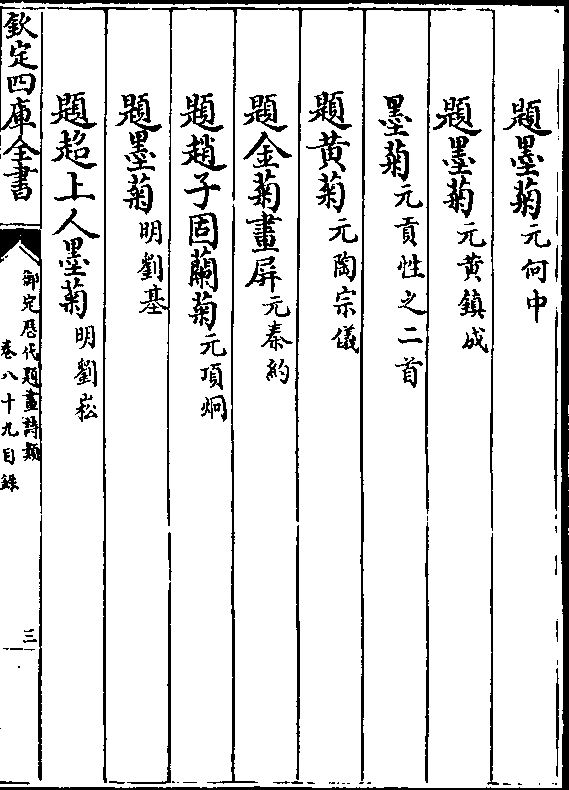 題墨菊元何中
題墨菊元黃鎮成
墨菊元貢性之二首
題黃菊元陶宗儀
題金菊畫屏元秦約
題趙子固蘭菊元項炯
題墨菊明劉基
題超上人墨菊明劉崧
欽定四庫全書
御定歷代題畫詩類
卷八十九目錄
三